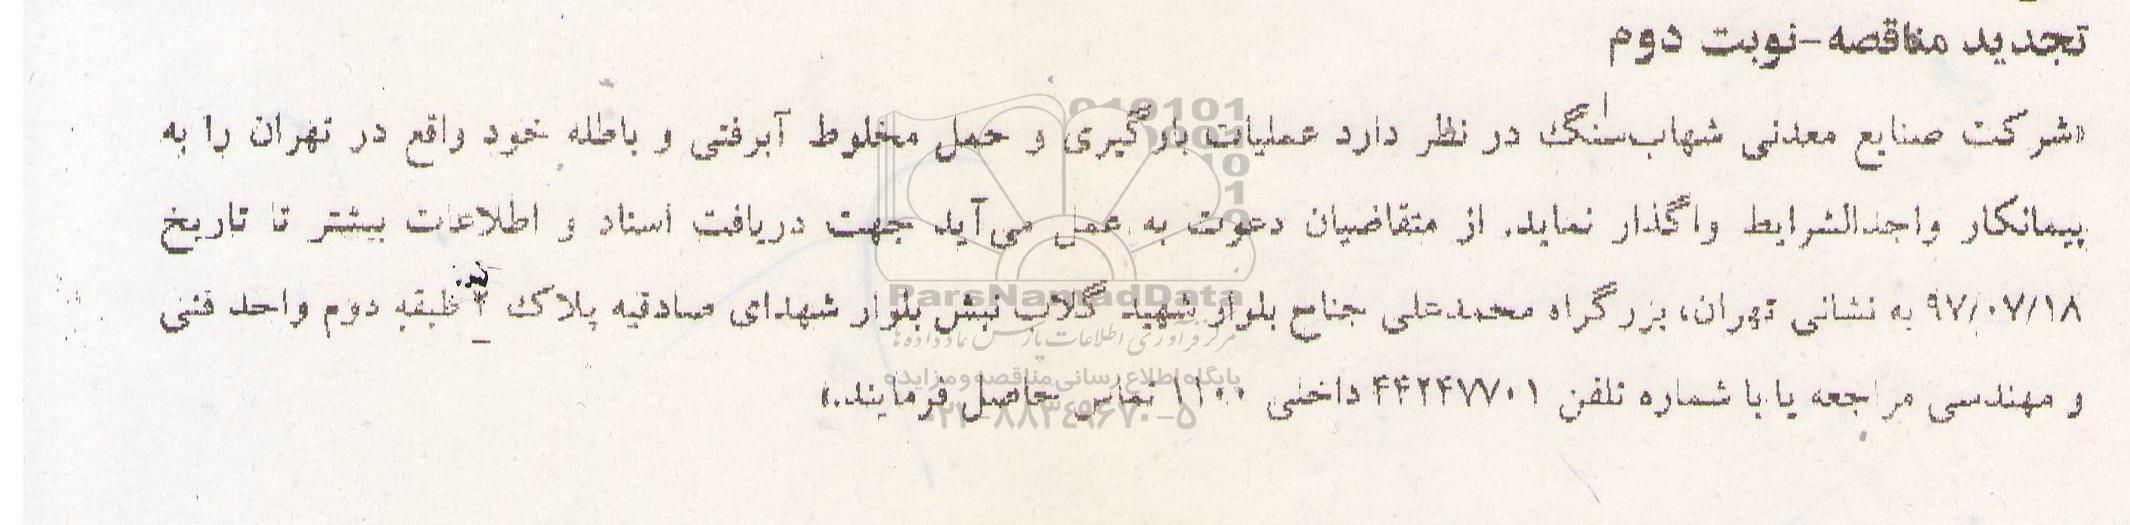 تجدید مناقصه-نوبت دوم
«شرکت صنایع معدنی شهاب‌سنگ در نظر دارد عملیات بارگیری و حمل مخلوط آبرفتی و باطله خود واقع در تهران را به
پیمانکار واجدالشرایط واگذار نماید. از متقاضیان دعوت به عمل می‌آید جهت دریافت اسناد و اطلاعات بیشتر تا تاریخ
۹۷/۰۷/۱۸ به نشانی تهران، بزرگراه محمدعلی جناح بلوار شهید گلاب نبش بلوار شهدای صادقیه پلاک ۲ طبقه دوم واحد فنی
و مهندسی مراجعه یا با شماره تلفن ۴۴۲۴۷۷۰۱ داخلی ۱۱۰۰ تماس حاصل فرمایند.»
ParsNamadData
پایگاه اطلاع رسانی مناقصه و مزایده
۰۲۱-۸۸۳۴۹۶۷۰-۵